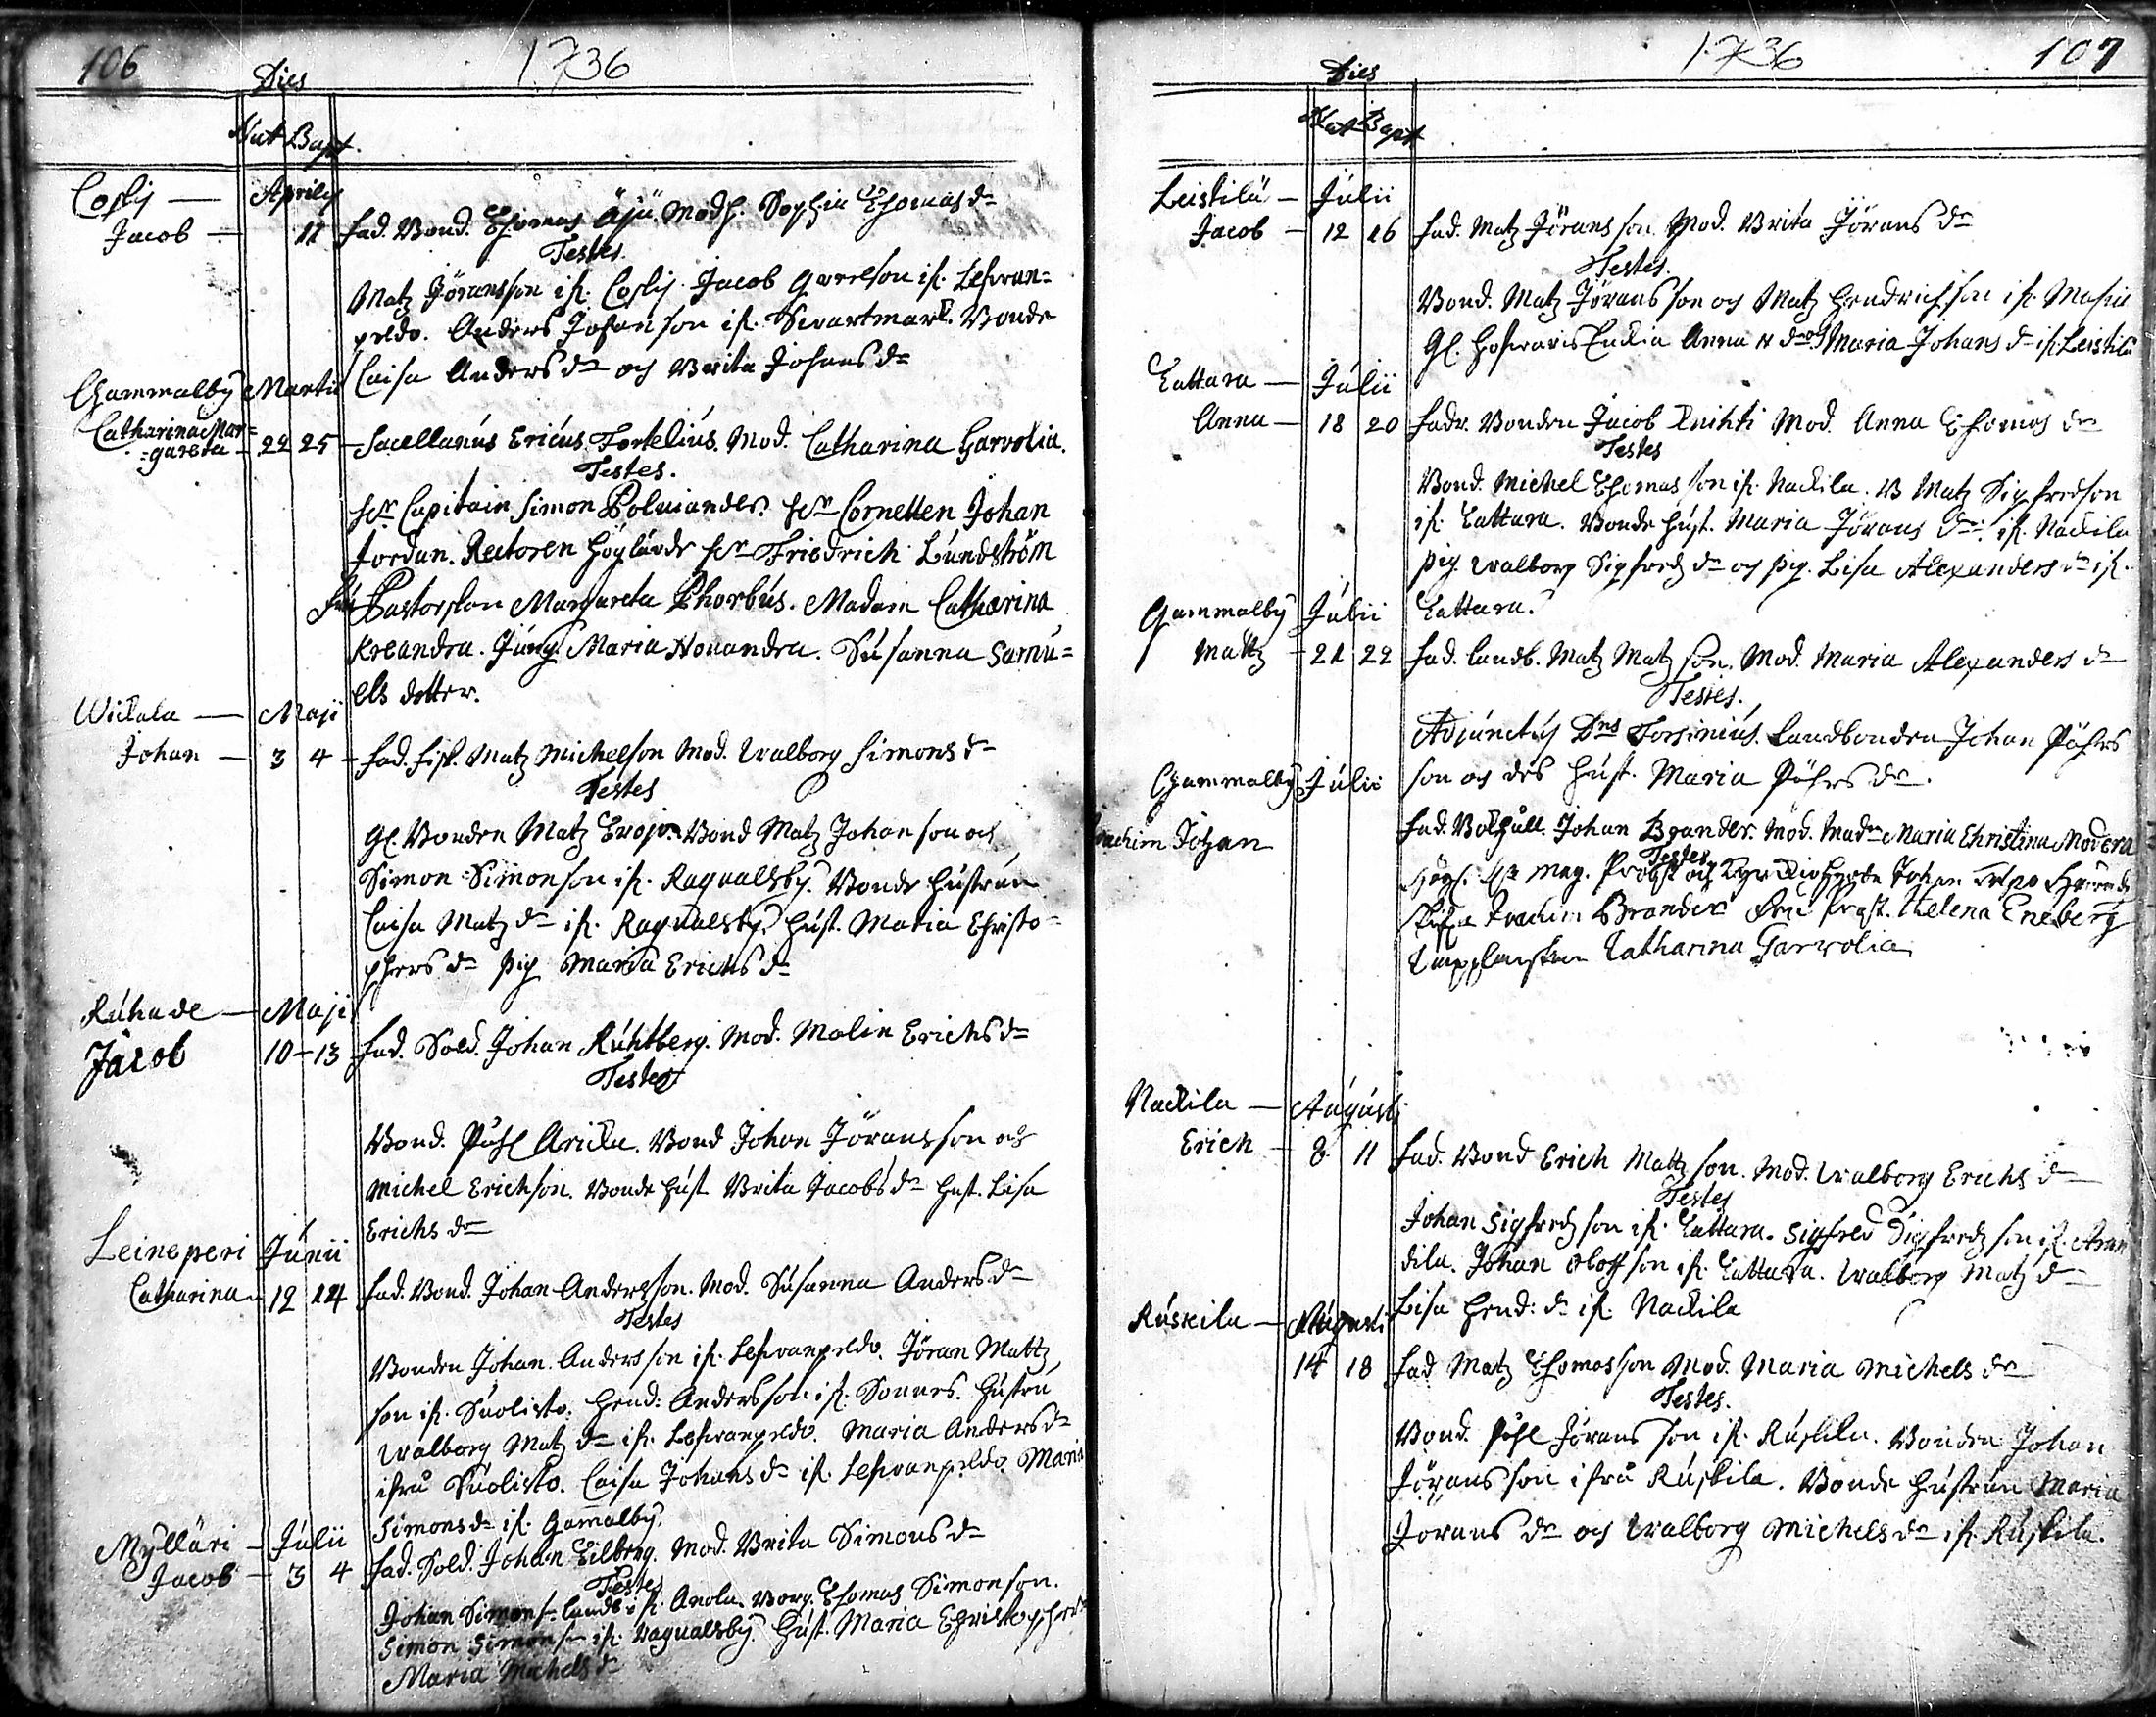 106
1736
Dies
Nat Bapt.
Coski — Aprilis
Jacob — 11 fad. Bond. Thomas Äijä. Modh. Sophia Thomas dr
Testes.
Matz Jöransson ifr. Coski. Jacob ifr. Lehvan=
peldo. Anders Johanson ifr. Svartmark. Bonde
Caisa Anders dr och Brita Johans dr
Gammalby Martii
Catharina Mar=
=gareta — 22 25 — Sacellanus Ericus Fortelius. Mod. Catharina Garvolia.
Testes.
Hr Capitain Simon Polviander. Hr Cornetten Johan
Jordan. Rectoren Höglärde Hr Friedrich Lundström
Fru Pastorskan Margareta Phorbus. Madam Catharina
Kreandra. Jungf. Maria Novandra. Susanna Samu=
els dotter.
Wickala — Maji
Johan — 3 4 — fad. Matz Michelson Mod. Walborg Simons dr
Testes
Gl. Bonden Matz Bond Matz Johanson och
Simon Simonson ifr. Ragvalsby. Bonde hustrun
Caisa Matz dr ifr. Ragvalsby. hust. Maria Christo=
phers dr pig Maria Erichs dr
Ruhade — Maji
Jacob 10 — 13 fad. Sold. Johan Ruhtberg. Mod. Malin Erichs dr
Testes
Bond. Påhl Aricka. Bond Johan Jöransson och
Michel Erichson. Bonde hust Brita Jacobs dr hust. Lisa
Erichs dr
Leineperi Junii
Catharina 12 14 fad. Bond. Johan Andersson. Mod. Susanna Anders dr
Testes
Bonden Johan Andersson ifr. Lehvanpeldo. Jöran Mattz
son ifr. Suolisto. Hend: Andersson ifr. Sonnäs. hustru
Walborg Matz dr ifr. Lehvanpeldo. Maria Anders dr
ifrå Suolisto. Caisa Johans dr ifr. Lehvanpeldo. Maria
Simons dr ifr. Gamalby.
Mylläri — Julii
Jacob — 3 4 fad. Sold. Johan Eilberg. Mod. Brita Simons dr
Testes
Johan Simons. ifr. Anola. Thomas Simonson.
Simon Simons. ifr. Ragvalsby. hust. Maria Christophers
Maria Michels dr
1736
107
Dies
Nat Bapt
Leistilä — Julii
Jacob — 12 16 fad. Matz Jöransson Mod. Brita Jörans dr
Testes.
Bond. Matz Jöransson och Matz Hendrichson ifr. Masia
Gl. Anna dr Maria Johans dr ifr. Leistilä
Tattara — Julii
Anna — 18 20 fadr. Bonden Jacob Knihti Mod. Anna Thomas dr
Testes
Bond. Michel Thomasson ifr. Nackila. B Matz Sigfredson
ifr. Tattara. Bonde hust. Maria Jörans dr ifr. Nackila
pig Walborg Sigfredz dr och pig. Lisa Alexanders dr ifr.
Tattara.
Gammalby Julii
Mattz — 21 22 fad. Landb. Matz Matzson. Mod. Maria Alexanders dr
Testes.
Adjunctus Dns Forsinius. Landbonden Johan Påhls
son och des hust. Maria Påhls dr.
Gammalby Julii
Joachim Johan fad. Johan Brander. Mod. Madm Maria Christina Modera
Testes
Hr Mag. Probst och Kyrckioherde Johan
Joachim Brander Fru Helena Eneberg
Catharina Garvolia
Nackila — Augusti
Erich — 8 11 fad. Bond Erich Mattzson. Mod. Walborg Erichs dr
Testes
Johan Sigfredzson ifr. Tattara. Sigfred Sigfredzson ifr.
dila. Johan Olofson ifr. Tattara. Walborg Matz dr
Lisa Hend: dr ifr. Nackila
Ruskila — Augusti
14 18 fad Matz Thomasson Mod. Maria Michels dr
Testes.
Bond. Påhl Jöransson ifr. Ruskila. Bonden Johan
Jöransson ifrå Ruskila. Bonde hustrun Maria
Jörans dr och Walborg Michels dr ifr. Ruskila.